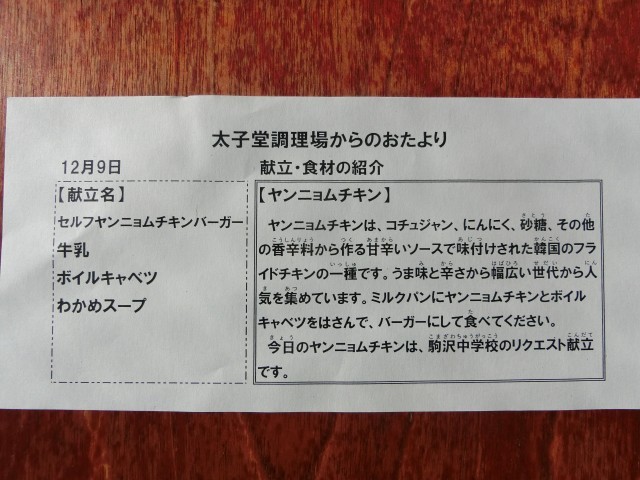 太子堂調理場からのおたより
12月9日
献立・食材の紹介
【献立名】
セルフヤンニョムチキンバーガー
牛乳
ボイルキャベツ
わかめスープ
【ヤンニョムチキン】
ヤンニョムチキンは、コチュジャン、にんにく、砂糖、その他
の香辛料から作る甘辛いソースで味付けされた韓国のフラ
イドチキンの一種です。うま味と辛さから幅広い世代から人
気を集めています。ミルクパンにヤンニョムチキンとボイル
キャベツをはさんで、バーガーにして食べてください。
今日のヤンニョムチキンは、駒沢中学校のリクエスト献立
です。